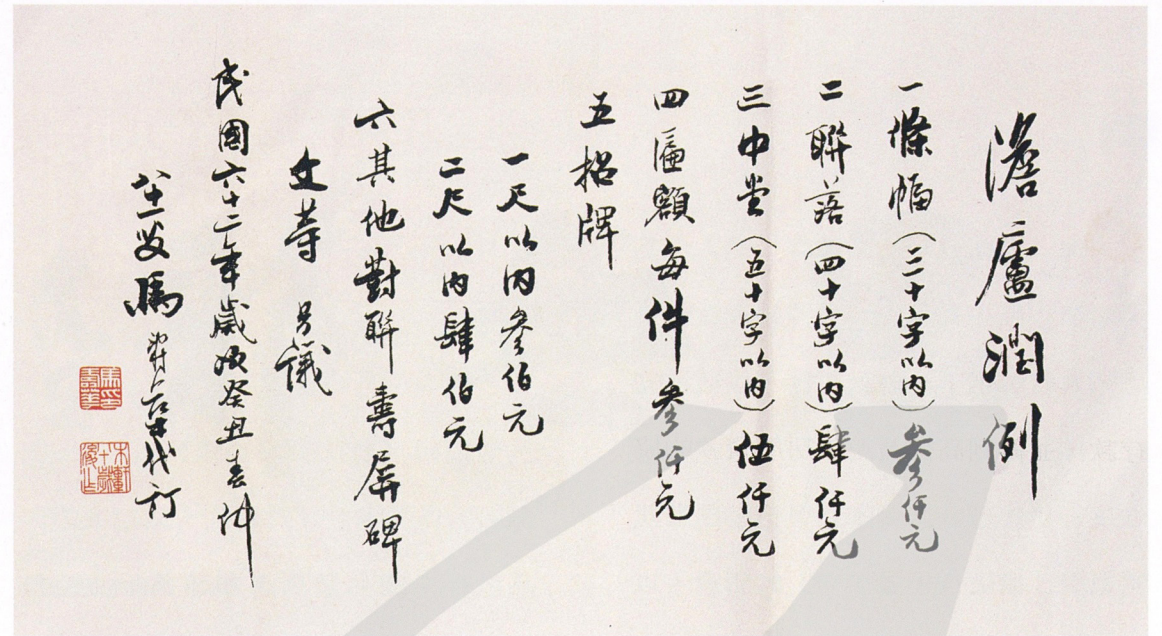 澹廬潤例
一條幅(三十字以內)參仟元
二聯落(四十字以內)肆仟元
三中堂(五十字以內)伍仟元
四匾額每件參仟元
五招牌
一尺以內參佰元
二尺以內肆佰元
六其他對聯壽屏碑
文等 另議
民國六十二年歲次癸丑春仲
八十一叟馬壽華代訂